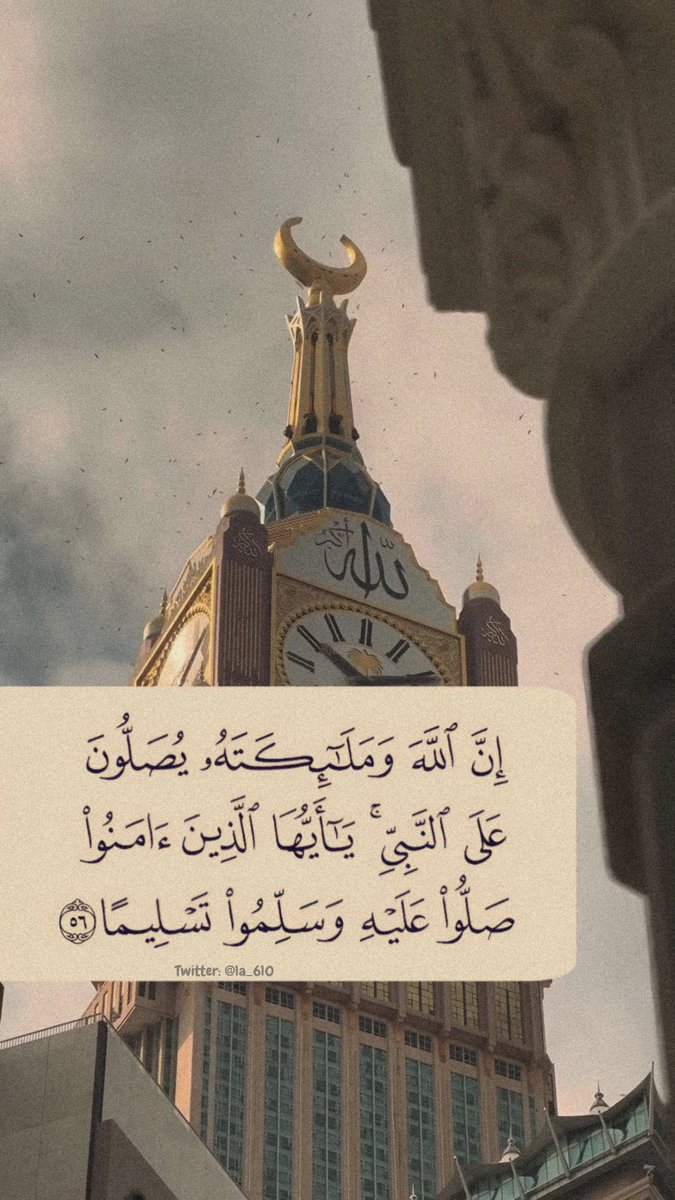 الله أكبر
إِنَّ ٱللَّهَ وَمَلَـٰٓئِكَتَهُۥ يُصَلُّونَ
عَلَى ٱلنَّبِىِّ ۚ يَـٰٓأَيُّهَا ٱلَّذِينَ ءَامَنُوا۟
صَلُّوا۟ عَلَيْهِ وَسَلِّمُوا۟ تَسْلِيمًا ٥٦
Twitter: @la_610